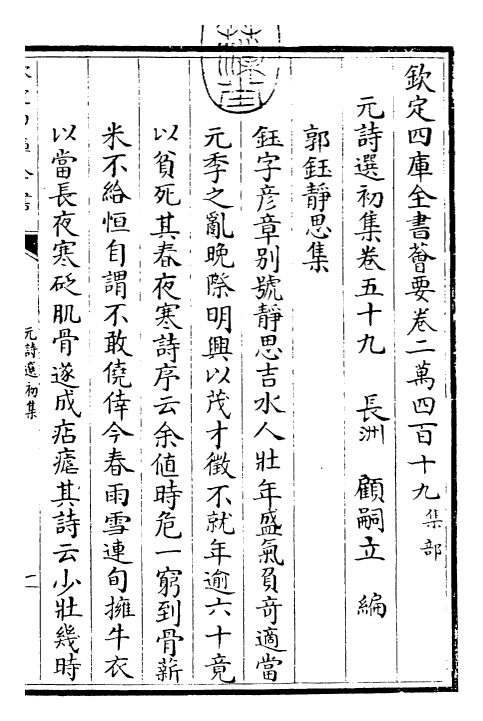 欽定四庫全書薈要卷二萬四百十九集部
元詩選初集卷五十九 長洲 顧嗣立 編
郭鈺靜思集
鈺字彦章别號靜思吉水人壯年盛氣負奇適當
元季之亂晚際明興以茂才徵不就年逾六十竟
以貧死其春夜寒詩序云余值時危一窮到骨薪
米不給恒自謂不敢僥倖今春雨雪連旬擁牛衣
以當長夜寒砭肌骨遂成痁瘧其詩云少壯幾時
元詩選初集